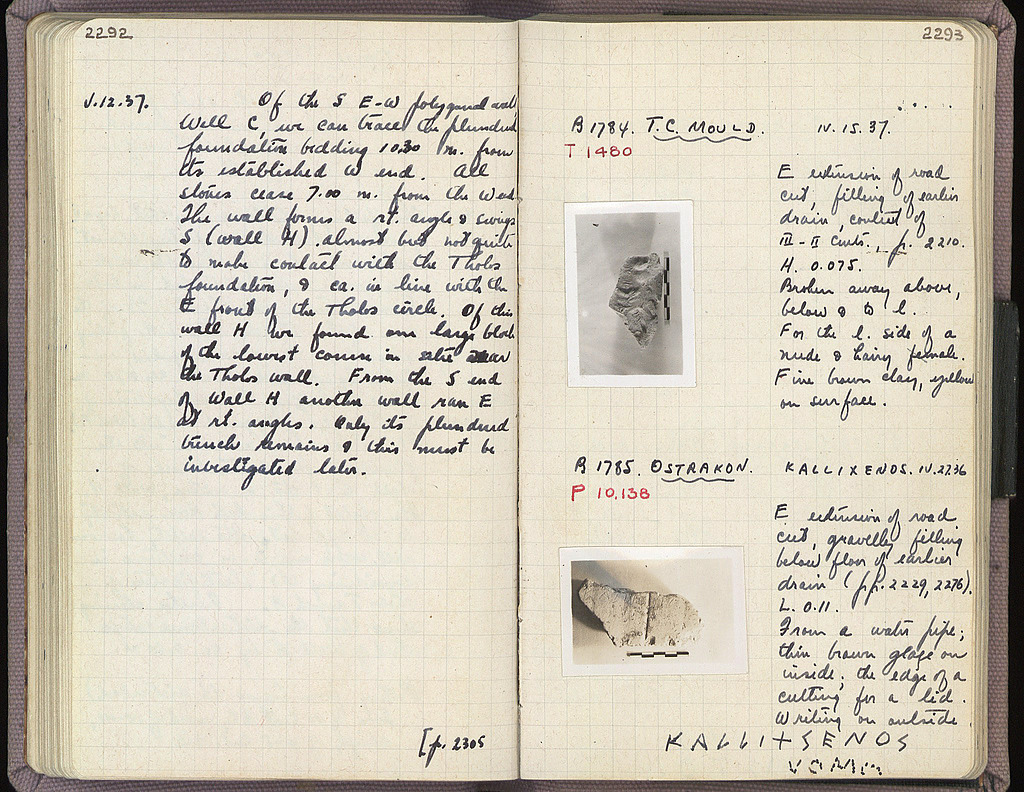 2292
V.12.37.
Of the S E-W polygonal wall
Wall C, we can trace the plundered
foundation bedding 10.30 m. from
its established W end. All
stones cease 7.00 m. from the W end
The wall forms a rt. angle & swings
S (wall H) almost but not quite
to make contact with the Tholos
foundation, & ca. in line with the
E front of the Tholos circle. Of this
wall H we found one large block
of the lowest course in situ near
the Tholos wall. From the S end
of Wall H another wall ran E
at rt. angles. Only its plundered
trench remains & this must be
investigated later.
[p. 2305
2293
B 1784. T.C. MOULD. IV.15.37.
T 1480
E extension of road
cut, filling of earlier
drain, context of
III-II cents., p. 2210.
H. 0.075.
Broken away above,
below & to l.
For the l. side of a
nude & hairy female.
Fine brown clay, yellow
on surface.
B 1785. OSTRAKON. KALLIXENOS. IV.27.36
P 10,138
E extension of road
cut, gravelly filling
below floor of earlier
drain (pp. 2229, 2276).
L. 0.11.
From a water pipe;
thin brown glaze on
inside; the edge of a
cutting for a lid.
Writing on outside
KALLI+SENOS